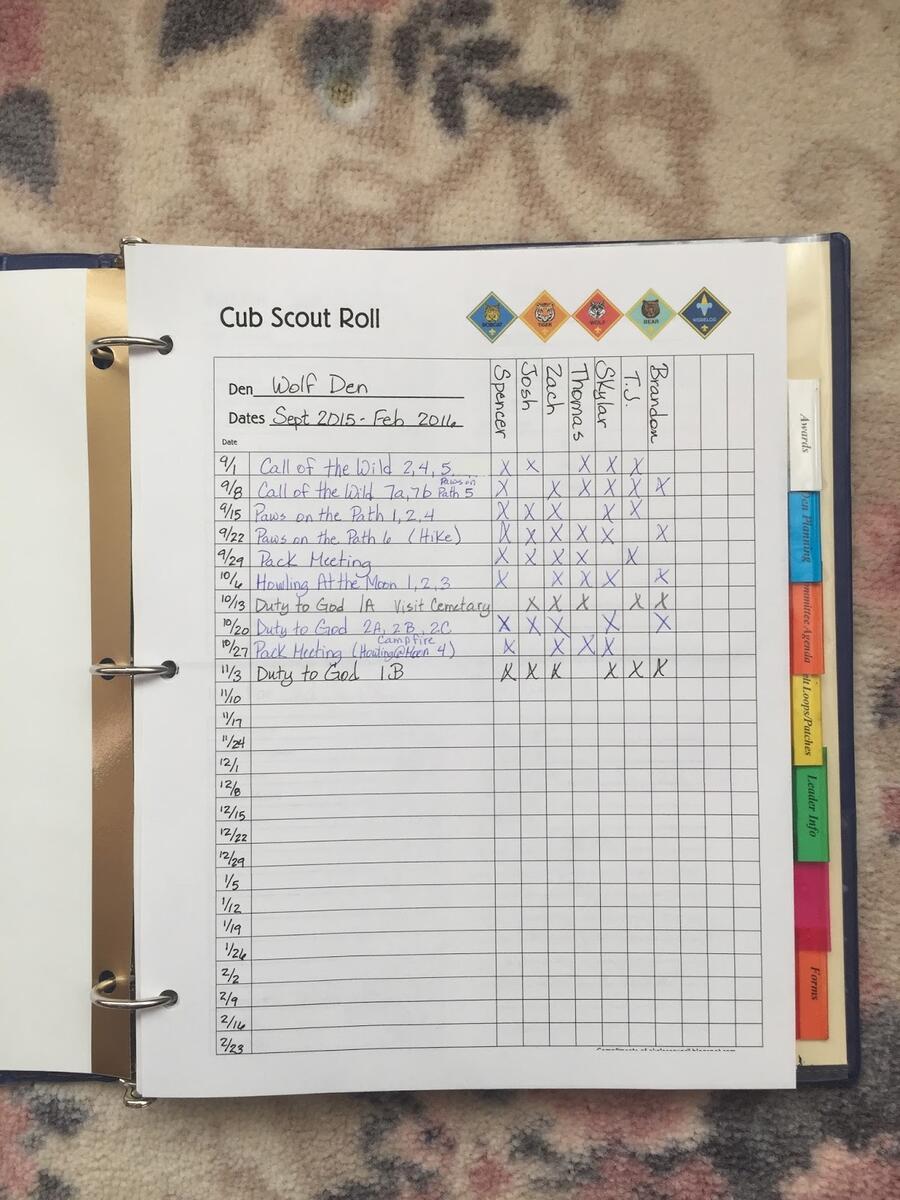 Cub Scout Roll
BOBCAT TIGER WOLF BEAR WEBELOS
Den Wolf Den
Dates Sept 2015 - Feb 2016
Date
Spencer
Josh
Zach
Thomas
Skylar
T.J.
Brandon
9/1 Call of the Wild 2,4,5 X X X X X
9/8 Call of the Wild 7a,7b Paws on Path 5 X X X X X X
9/15 Paws on the Path 1,2,4 X X X X X
9/22 Paws on the Path 6 (Hike) X X X X X X
9/29 Pack Meeting X X X X X
10/6 Howling At the Moon 1,2,3 X X X X X
10/13 Duty to God 1A Visit Cemetary X X X X X
10/20 Duty to God 2A, 2B, 2C X X X X X
10/27 Pack Meeting (Campfire Howling@Moon 4) X X X X
11/3 Duty to God 1B X X X X X X
11/10
11/17
11/24
12/1
12/8
12/15
12/22
12/29
1/5
1/12
1/19
1/26
2/2
2/9
2/16
2/23
Awards
Den Planning
mmittee Agenda
elt Loops/Patches
Leader Info
Forms